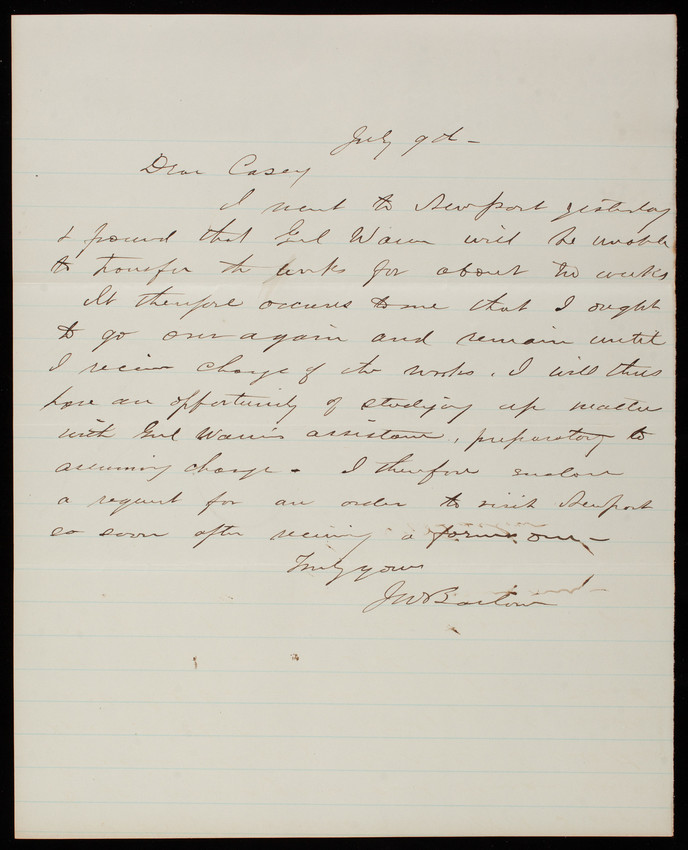 July 9th -
Dear Casey
I went to Newport yesterday
& found that Genl Warren will be unable
to transfer the works for about two weeks
It therefore occurs to me that I ought
to go over again and remain until
I receive charge of the works. I will thus
have an opportunity of studying up matter
with Genl Warren's assistance, preparatory to
assuming charge - I therefore enclose
a request for an order to visit Newport
so soon after receiving a former one -
Truly yours
JWBarlow